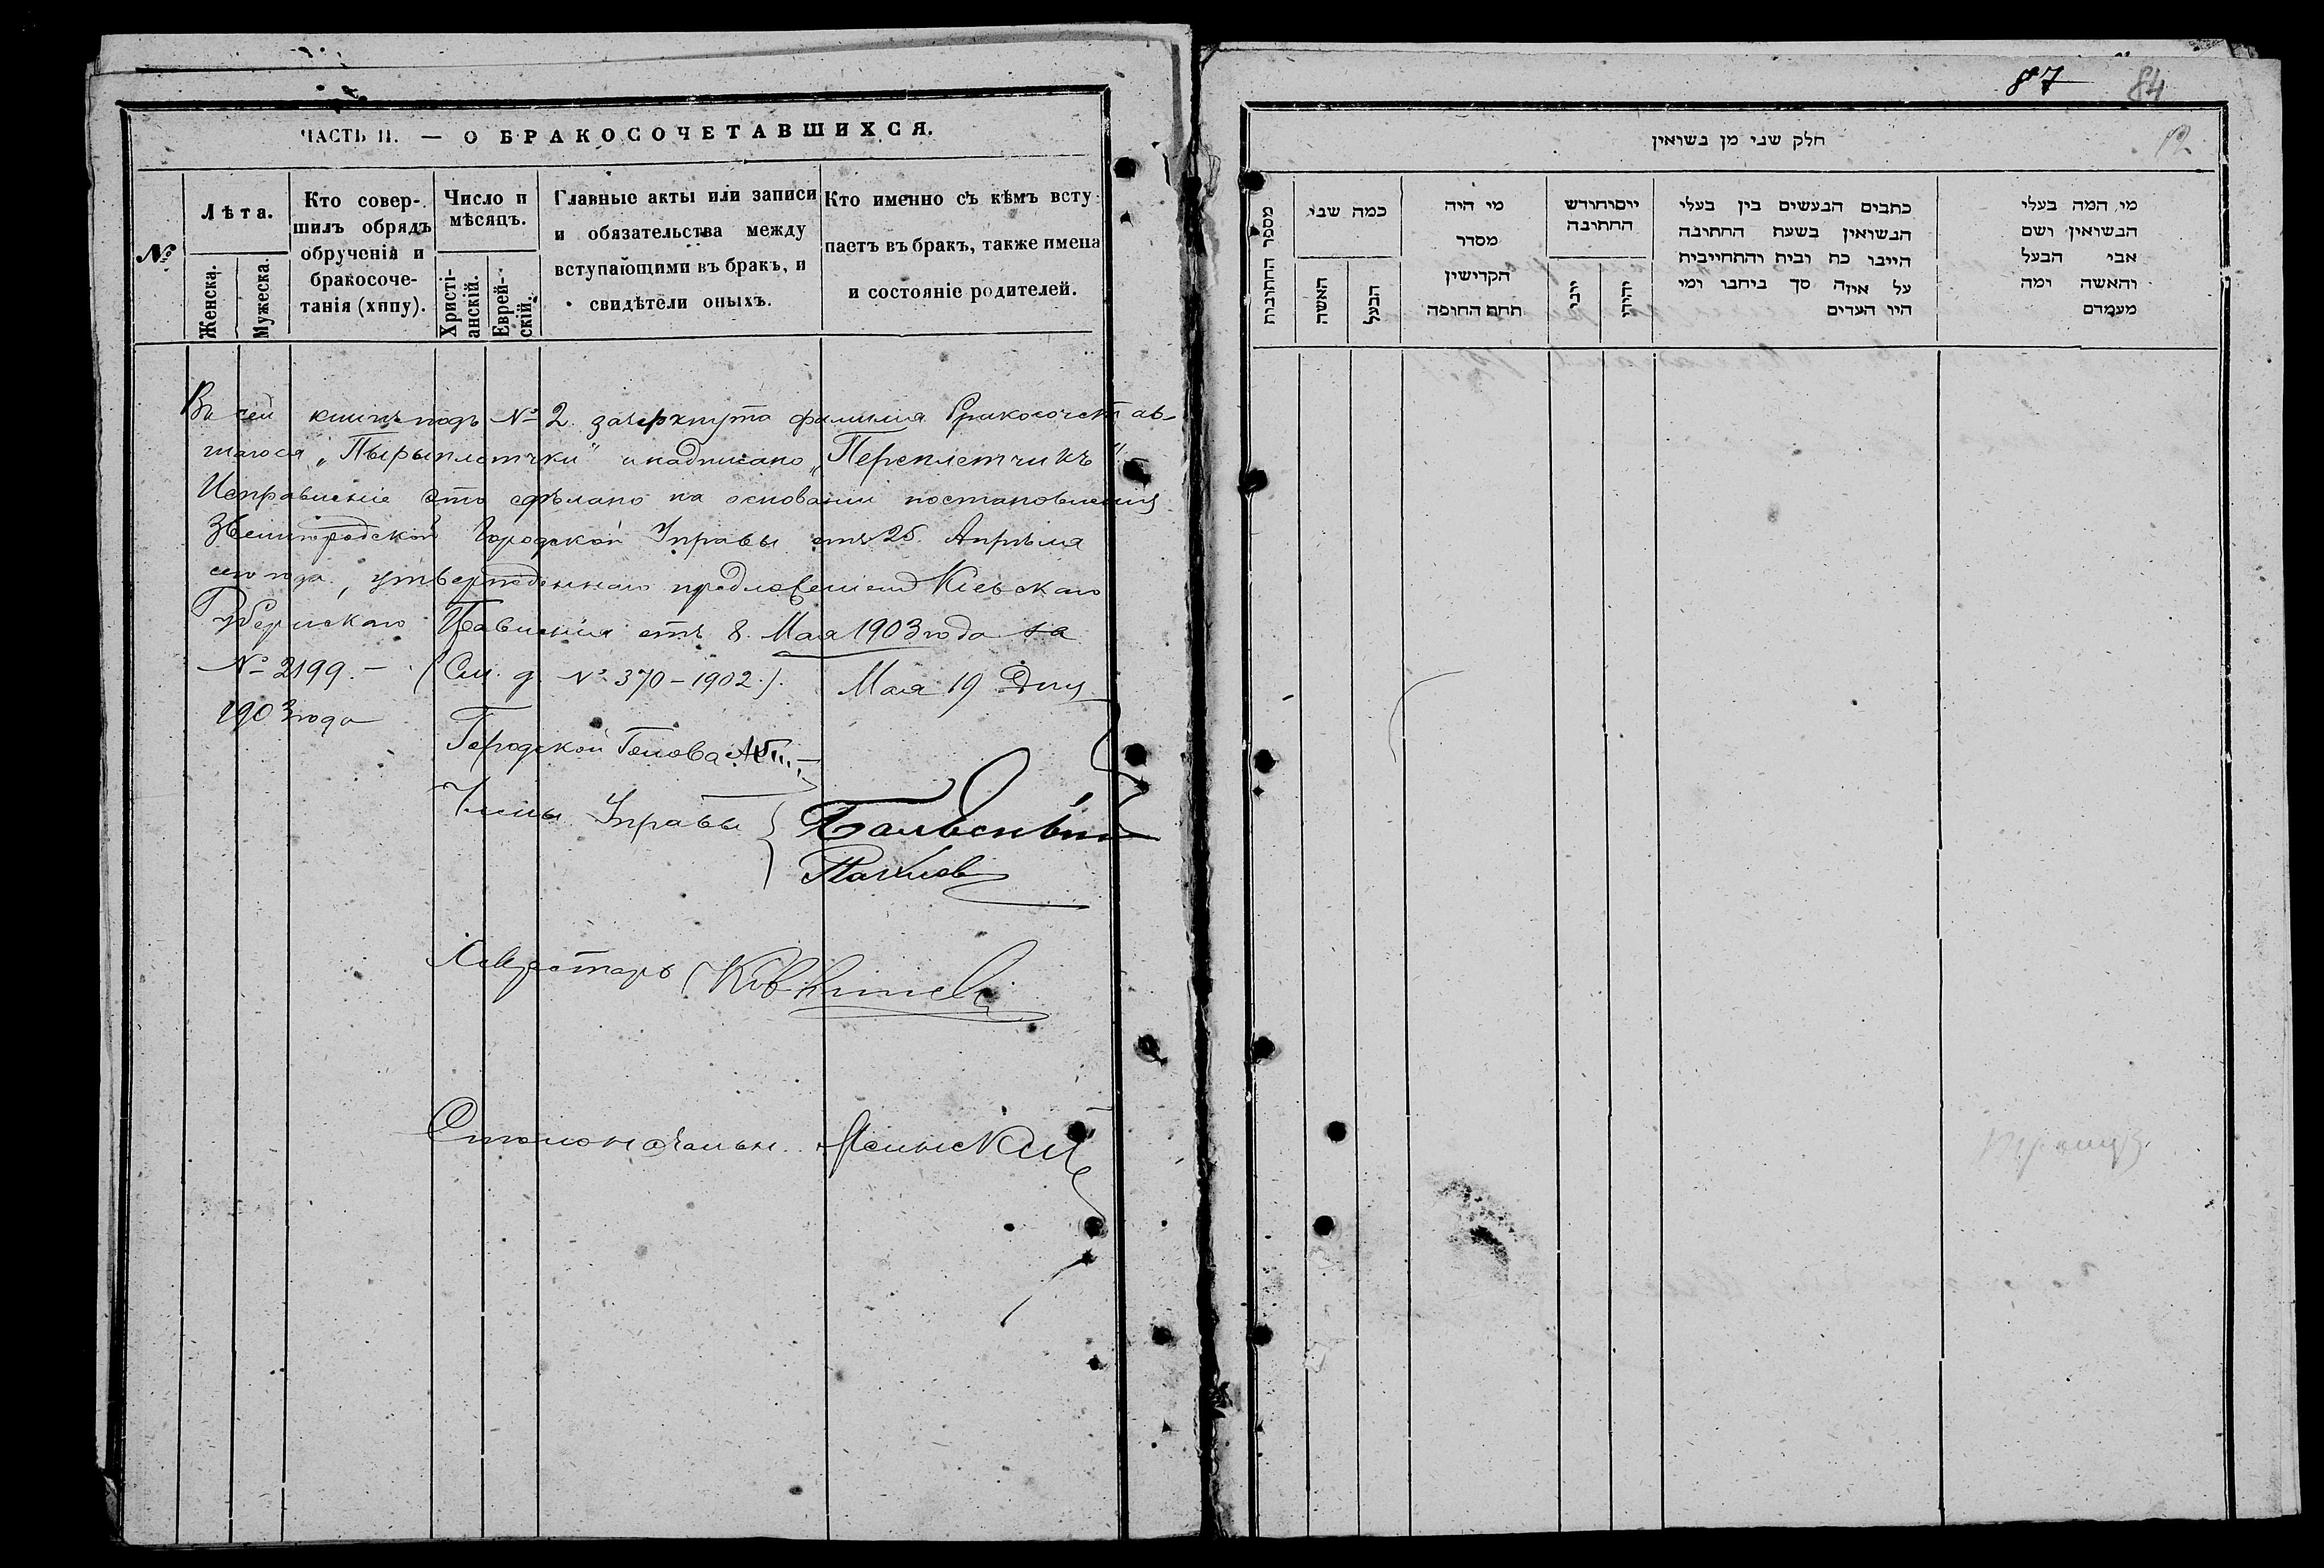 ЧАСТЬ II. — О БРАКОСОЧЕТАВШИХСЯ.
№
Лѣта.
Женска.
Мужеска.
Кто совер-
шилъ обрядъ
обрученія и
бракосоче-
танія (хппу).
Число и
мѣсяцъ.
Христі-
анскій.
Еврей-
скій.
Главные акты или записи
и обязательства между
вступающими въ брак, и
свидѣтели оныхъ.
Кто именно съ кѣмъ всту
паетъ въ брак, также имена
и состояніе родителей.
Въ сей книгѣ подъ № 2 зачеркнута фамилія бракосочетав-
шагося „Пырыплетчки" и надписано „Переплетчикъ"
Исправленіе это сдѣлано на основаніи постановленія
Звенигородской Городской Управы отъ 25 Апрѣля
сего года, утвержденнаго предложеніемъ Кіевскаго
Губернскаго Правленія отъ 8 Мая 1903 года за
№ 2199. – (См. д. № 370 – 1902.). Мая 19 дня
1903 года
Городской Голова
Члены Управы
Секретарь
Столоначальн.
87 84
חלק שני מן נשואין
מספר החתונות
כמה שני
האשה
הבעל
מי היה
מסדר
הקדישין
תחת החופה
יוםוחודש
החתונה
יוני
יהודי
כתבים הנעשים בין בעלי
הנשואין בשעת החתונה
היינו כח ובית והתחייבית
על איזה סך ניתנו ומי
היו העדים
מי המה בעלי
הנשואין ושם
אבי הבעל
והאשה ומה
מעמדם